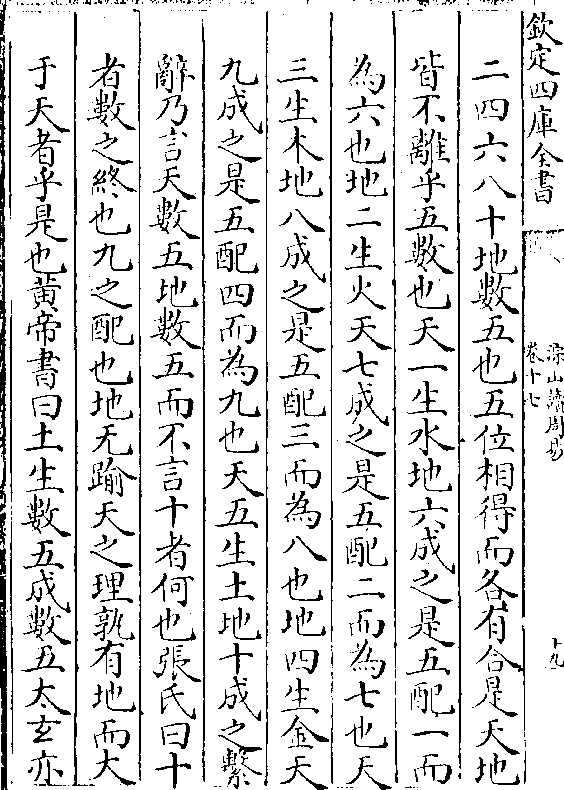 欽定四庫全書
深山讀周易
卷十七
十九
二四六八十地數五也五位相得而各有合是天地
皆不離乎五數也天一生水地六成之是五配一而
為六也地二生火天七成之是五配二而為七也天
三生木地八成之是五配三而為八也地四生金天
九成之是五配四而為九也天五生土地十成之繫
辭乃言天數五地數五而不言十者何也張氏曰十
者數之終也九之配也地无踰天之理孰有地而大
于天者乎是也黄帝書曰土生數五成數五太玄亦